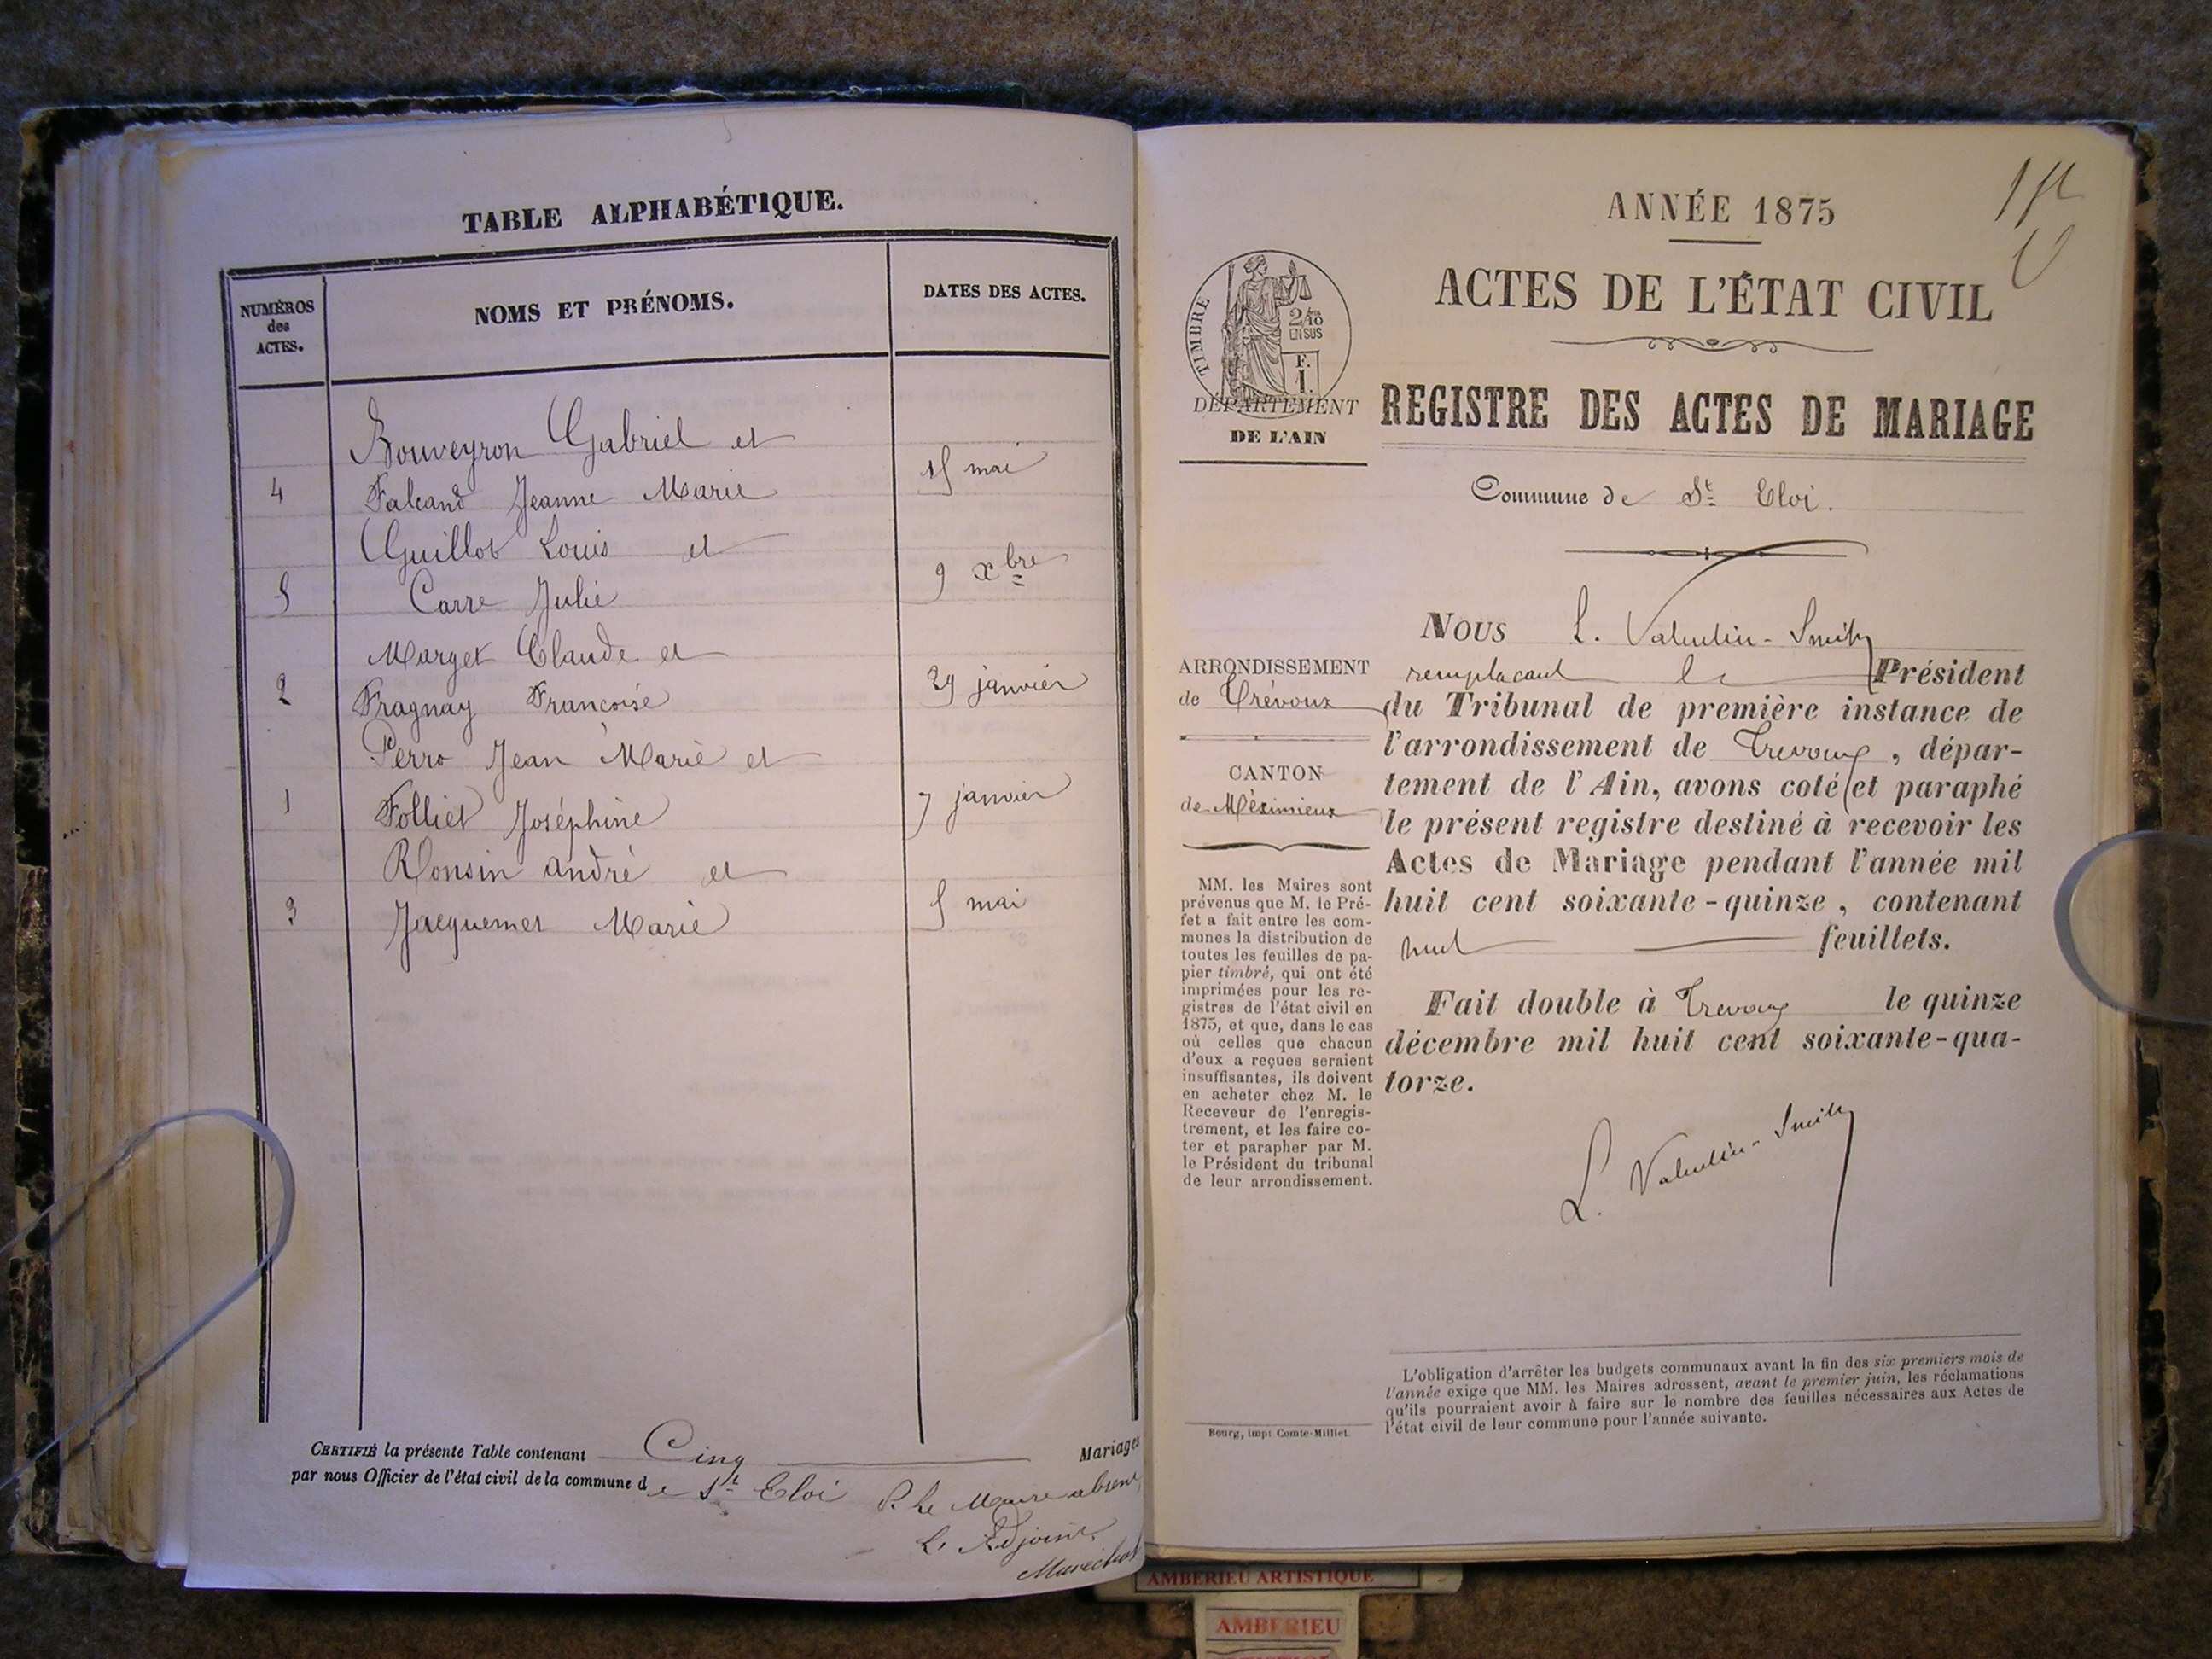 TABLE ALPHABÉTIQUE.
NUMÉROS
des
ACTES.
NOMS ET PRÉNOMS.
DATES DES ACTES.
Bouveyron Gabriel et
4 Falcand Jeanne Marie 15 mai
Guillot Louis et
5 Carre Julie 9 xbre
Marget Claude et
2 Fragnay Francoise 29 janvier
Perro Jean Marie et
1 Folliet Joséphine 7 janvier
Ronsin andré et
3 Jacquemet Marie 5 mai
CERTIFIÉ la présente Table contenant Cinq Mariages
par nous Officier de l'état civil de la commune de St Eloi
P. Le Maire absent,
L'Adjoint,
Maréchal
ANNÉE 1875
ACTES DE L'ÉTAT CIVIL
TIMBRE
2/10
EN SUS
F.
1.
DÉPARTEMENT
DE L'AIN
REGISTRE DES ACTES DE MARIAGE
Commune de St Eloi.
ARRONDISSEMENT
de Trévoux
CANTON
de Méximieux
MM. les Maires sont
prévenus que M. le Pré-
fet a fait entre les com-
munes la distribution de
toutes les feuilles de pa-
pier timbré, qui ont été
imprimées pour les re-
gistres de l'état civil en
1875, et que, dans le cas
où celles que chacun
d'eux a reçues seraient
insuffisantes, ils doivent
en acheter chez M. le
Receveur de l'enregis-
trement, et les faire co-
ter et parapher par M.
le Président du tribunal
de leur arrondissement.
NOUS L. Valentin-Smith
remplacant le Président
du Tribunal de première instance de
l'arrondissement de Trevoux, dépar-
tement de l'Ain, avons coté et paraphé
le présent registre destiné à recevoir les
Actes de Mariage pendant l'année mil
huit cent soixante-quinze, contenant
huit feuillets.
Fait double à Trevoux le quinze
décembre mil huit cent soixante-qua-
torze.
L. Valentin-Smith
L'obligation d'arrêter les budgets communaux avant la fin des six premiers mois de
l'année exige que MM. les Maires adressent, avant le premier juin, les réclamations
qu'ils pourraient avoir à faire sur le nombre des feuilles nécessaires aux Actes de
l'état civil de leur commune pour l'année suivante.
Bourg, impr Comte-Milliet.
AMBERIEU ARTISTIQUE
AMBERIEU